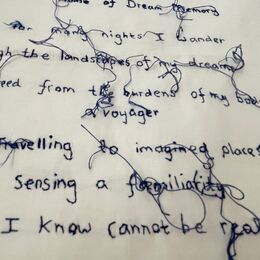 use of Dream Memory
For many nights I wander
gh the landscapes of my dreams
eed from the burdens of my bod
a voyager
Travelling to imagined places
Sensing a familiarity
I know cannot be real